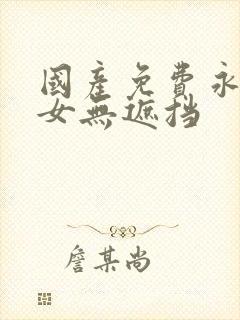 國產免費永
女無遮挡
詹某尚